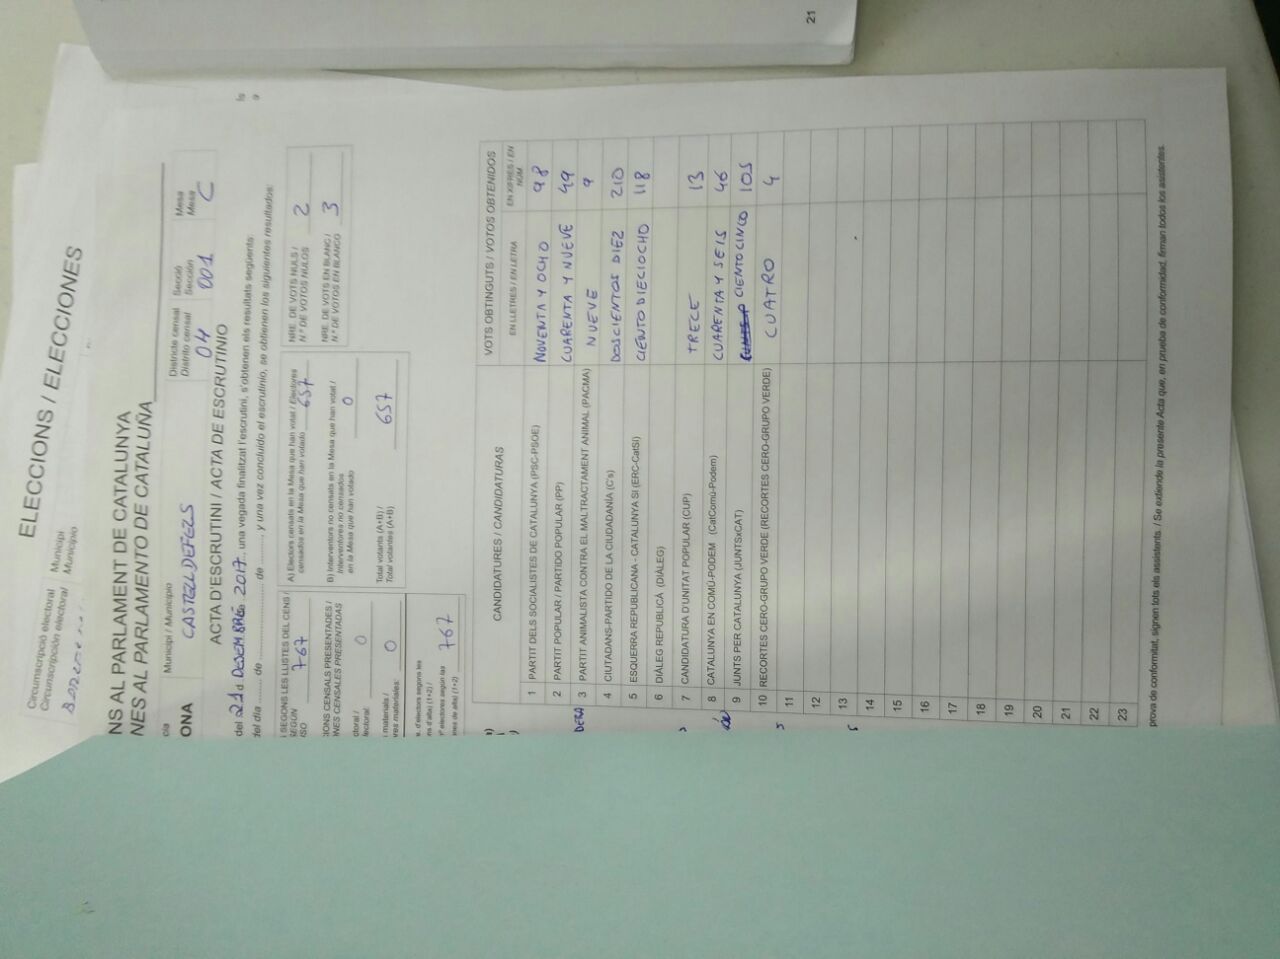 21
ELECCIONS / ELECCIONES
Circumscripció electoral
Circunscripción electoral
Municipi
Municipio
NS AL PARLAMENT DE CATALUNYA
NES AL PARLAMENTO DE CATALUÑA
ONA
Municipi / Municipio
CASTELLDEFELS
Districte censal
Distrito censal
04
Secció
Sección
001
Mesa
Mesa
C
ACTA D'ESCRUTINI / ACTA DE ESCRUTINIO
del 21 d DESEMBRE 2017, una vegada finalitzat l'escrutini, s'obtenen els resultats següents:
del día ........ de ........................ de ........, y una vez concluido el escrutinio, se obtienen los siguientes resultados:
SEGONS LES LLISTES DEL CENS /
SEGÚN
NSO
767
A) Electors censats en la Mesa que han votat / Electores
censados en la Mesa que han votado
657
NRE. DE VOTS NULS /
N.º DE VOTOS NULOS
2
IONS CENSALS PRESENTADES /
ONES CENSALES PRESENTADAS
0
B) Interventors no censats en la Mesa que han votat /
Interventores no censados
en la Mesa que han votado
0
NRE. DE VOTS EN BLANC /
N.º DE VOTOS EN BLANCO
3
0
Total votants (A+B) /
Total votantes (A+B)
657
767
CANDIDATURES / CANDIDATURAS
VOTS OBTINGUTS / VOTOS OBTENIDOS
EN LLETRES / EN LETRA
EN XIFRES / EN NÚM.
1 PARTIT DELS SOCIALISTES DE CATALUNYA (PSC-PSOE) NOVENTA Y OCHO 98
2 PARTIT POPULAR / PARTIDO POPULAR (PP) CUARENTA Y NUEVE 49
3 PARTIT ANIMALISTA CONTRA EL MALTRACTAMENT ANIMAL (PACMA) NUEVE 9
4 CIUTADANS-PARTIDO DE LA CIUDADANÍA (C's) DOSCIENTOS DIEZ 210
5 ESQUERRA REPUBLICANA - CATALUNYA SÍ (ERC-CatSí) CIENTO DIECIOCHO 118
6 DIÀLEG REPUBLICÀ (DIÀLEG)
7 CANDIDATURA D'UNITAT POPULAR (CUP) TRECE 13
8 CATALUNYA EN COMÚ-PODEM (CatComú-Podem) CUARENTA Y SEIS 46
9 JUNTS PER CATALUNYA (JUNTSxCAT) CIENTO CINCO 105
10 RECORTES CERO-GRUPO VERDE (RECORTES CERO-GRUPO VERDE) CUATRO 4
11
12
13
14
15
16
17
18
19
20
21
22
23
prova de conformitat, signen tots els assistents. / Se extiende la presente Acta que, en prueba de conformidad, firman todos los asistentes.